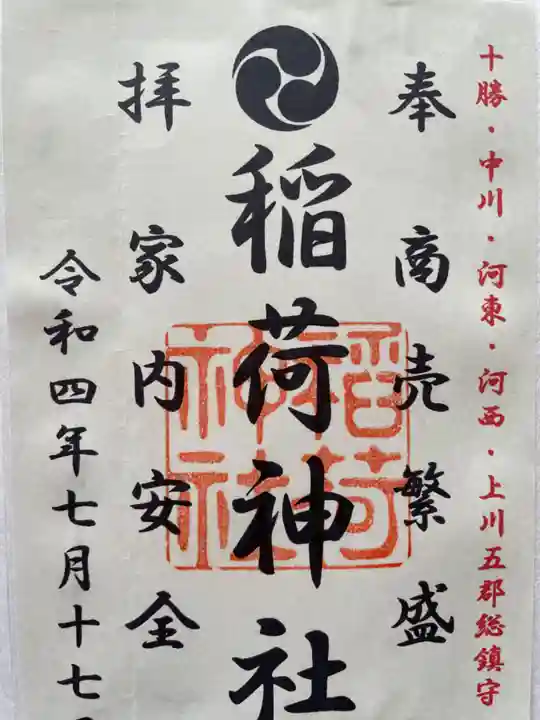 十勝・中川・河東・河西・上川五郡総鎮守
奉 商売繁盛
稲荷神社
拝 家内安全
令和四年七月十七日
稲荷神社